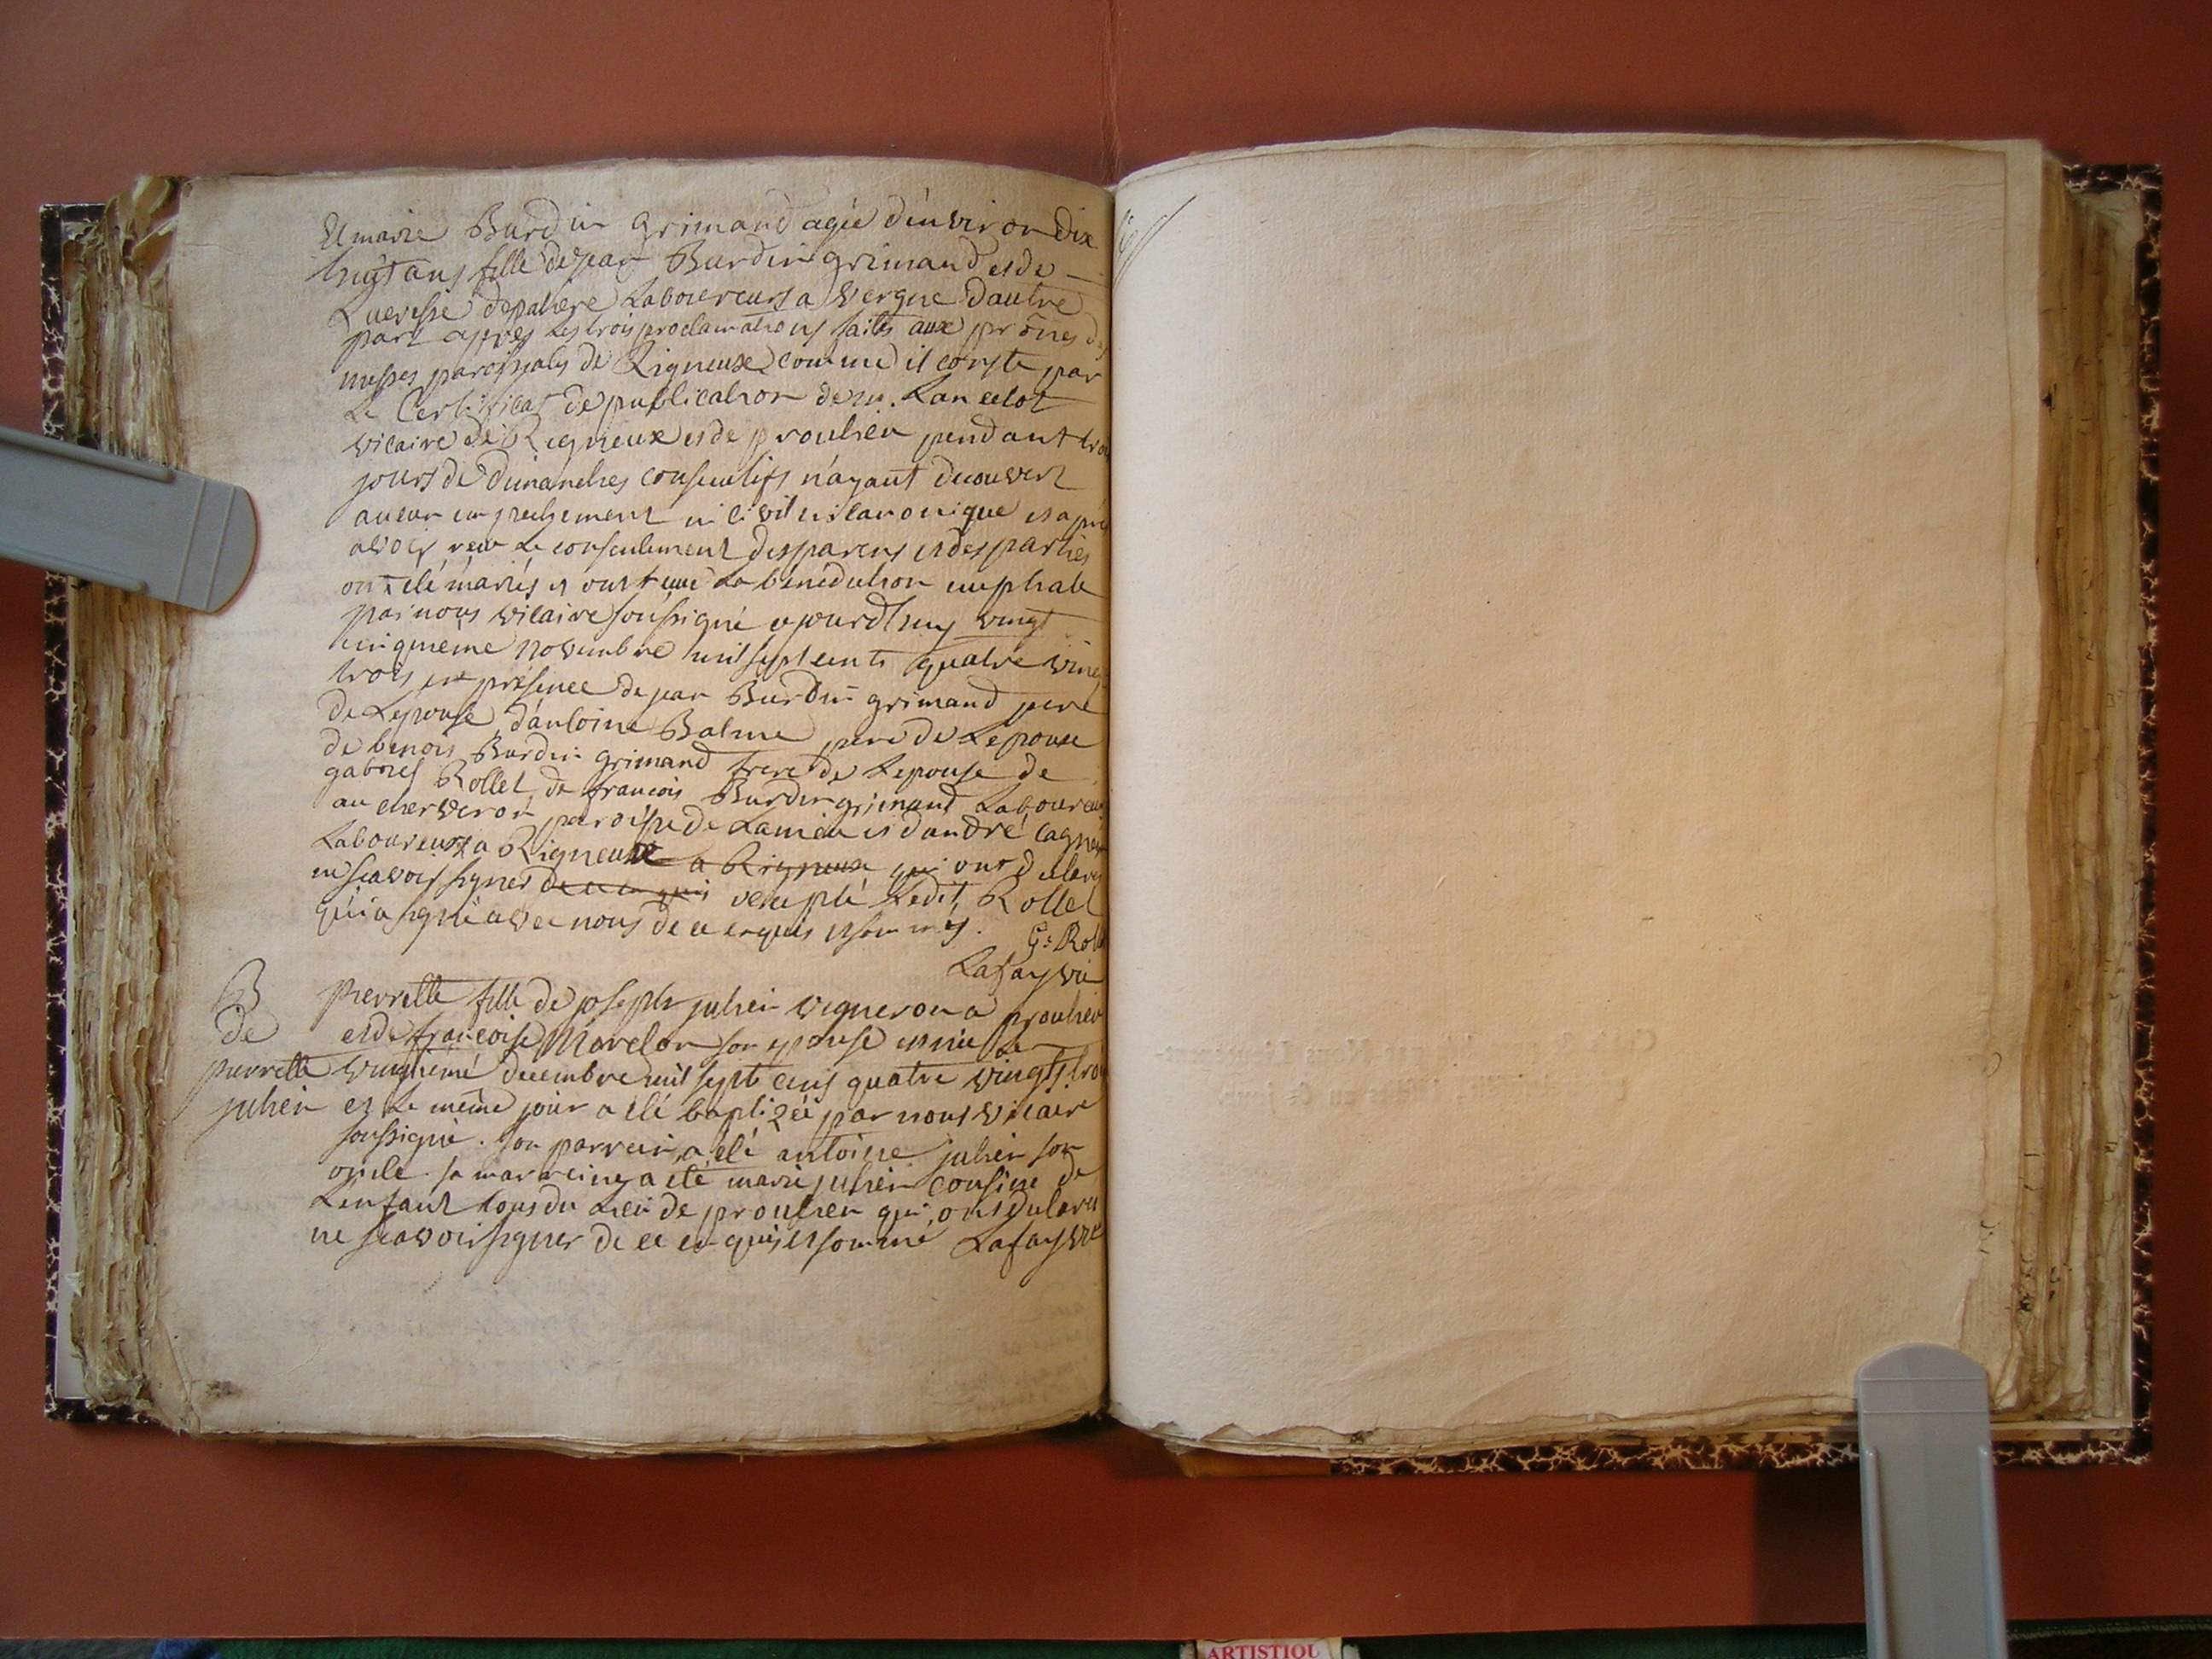 Et marie Burdin grimand agée d'environ dix
huit ans fille de jean Burdin grimand et de
Laboureurs a vergne d'autre
part apres les trois proclamations faites aux prônes des
messes paroissiales de Rigneux comme il conste par
Le Certificat de publication de m. Lancelot
vicaire de Rigneux et de proulieu pendant trois
jours de dimanches consecutifs n'ayant decouvert
aucun empechement ni civil ni canonique et après
avoir reçu Le consentement des parens et des parties
ont été mariés et ont reçue La bénédiction nuptiale
par nous vicaire soussigné ajourdhuy vingt
cinquieme novembre mil sept cents quatre vingt
trois en présence de jean Burdin grimand pere
de L'epouse, d'antoine Balme pere de L'epoux
de benois Burdin grimand frere de L'epouse de
gabriel Rollet, de francois Burdin grimand Laboureur
au cher veron paroisse de Lanieu et d'andré
Laboureurs a Rigneux a Rigneux qui ont déclaré
ne scavoir signer de ce enquis excepté Ledit Rollet
qui a signé avec nous de ce enquis et sommés.
G: Rol
Lafay vic
B
de
pierrette
julien
pierrette fille de joseph julien vigneron a proulieu
et de francoise Morelon son epouse est née Le
vingtième decembre mil sept cens quatre vingts trois
et Le même jour a été baptizée par nous vicaire
soussigné. son parrein a été antoine julien son
oncle. sa marreine a été marie julien cousine de
L'enfant tous du Lieu de proulieu qui ont declaré
ne scavoir signer de ce enquis et sommé Lafay vic
ARTISTIQU